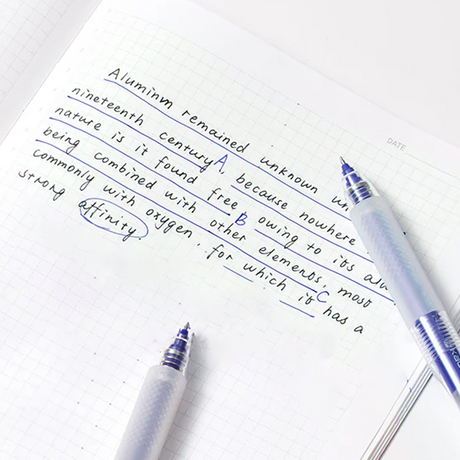 DATE
Aluminum remained unknown
nineteenth century A, because nowhere
nature is it found free B owing to its
being combined with other elements, most C
commonly with oxygen, for which it has a
strong affinity